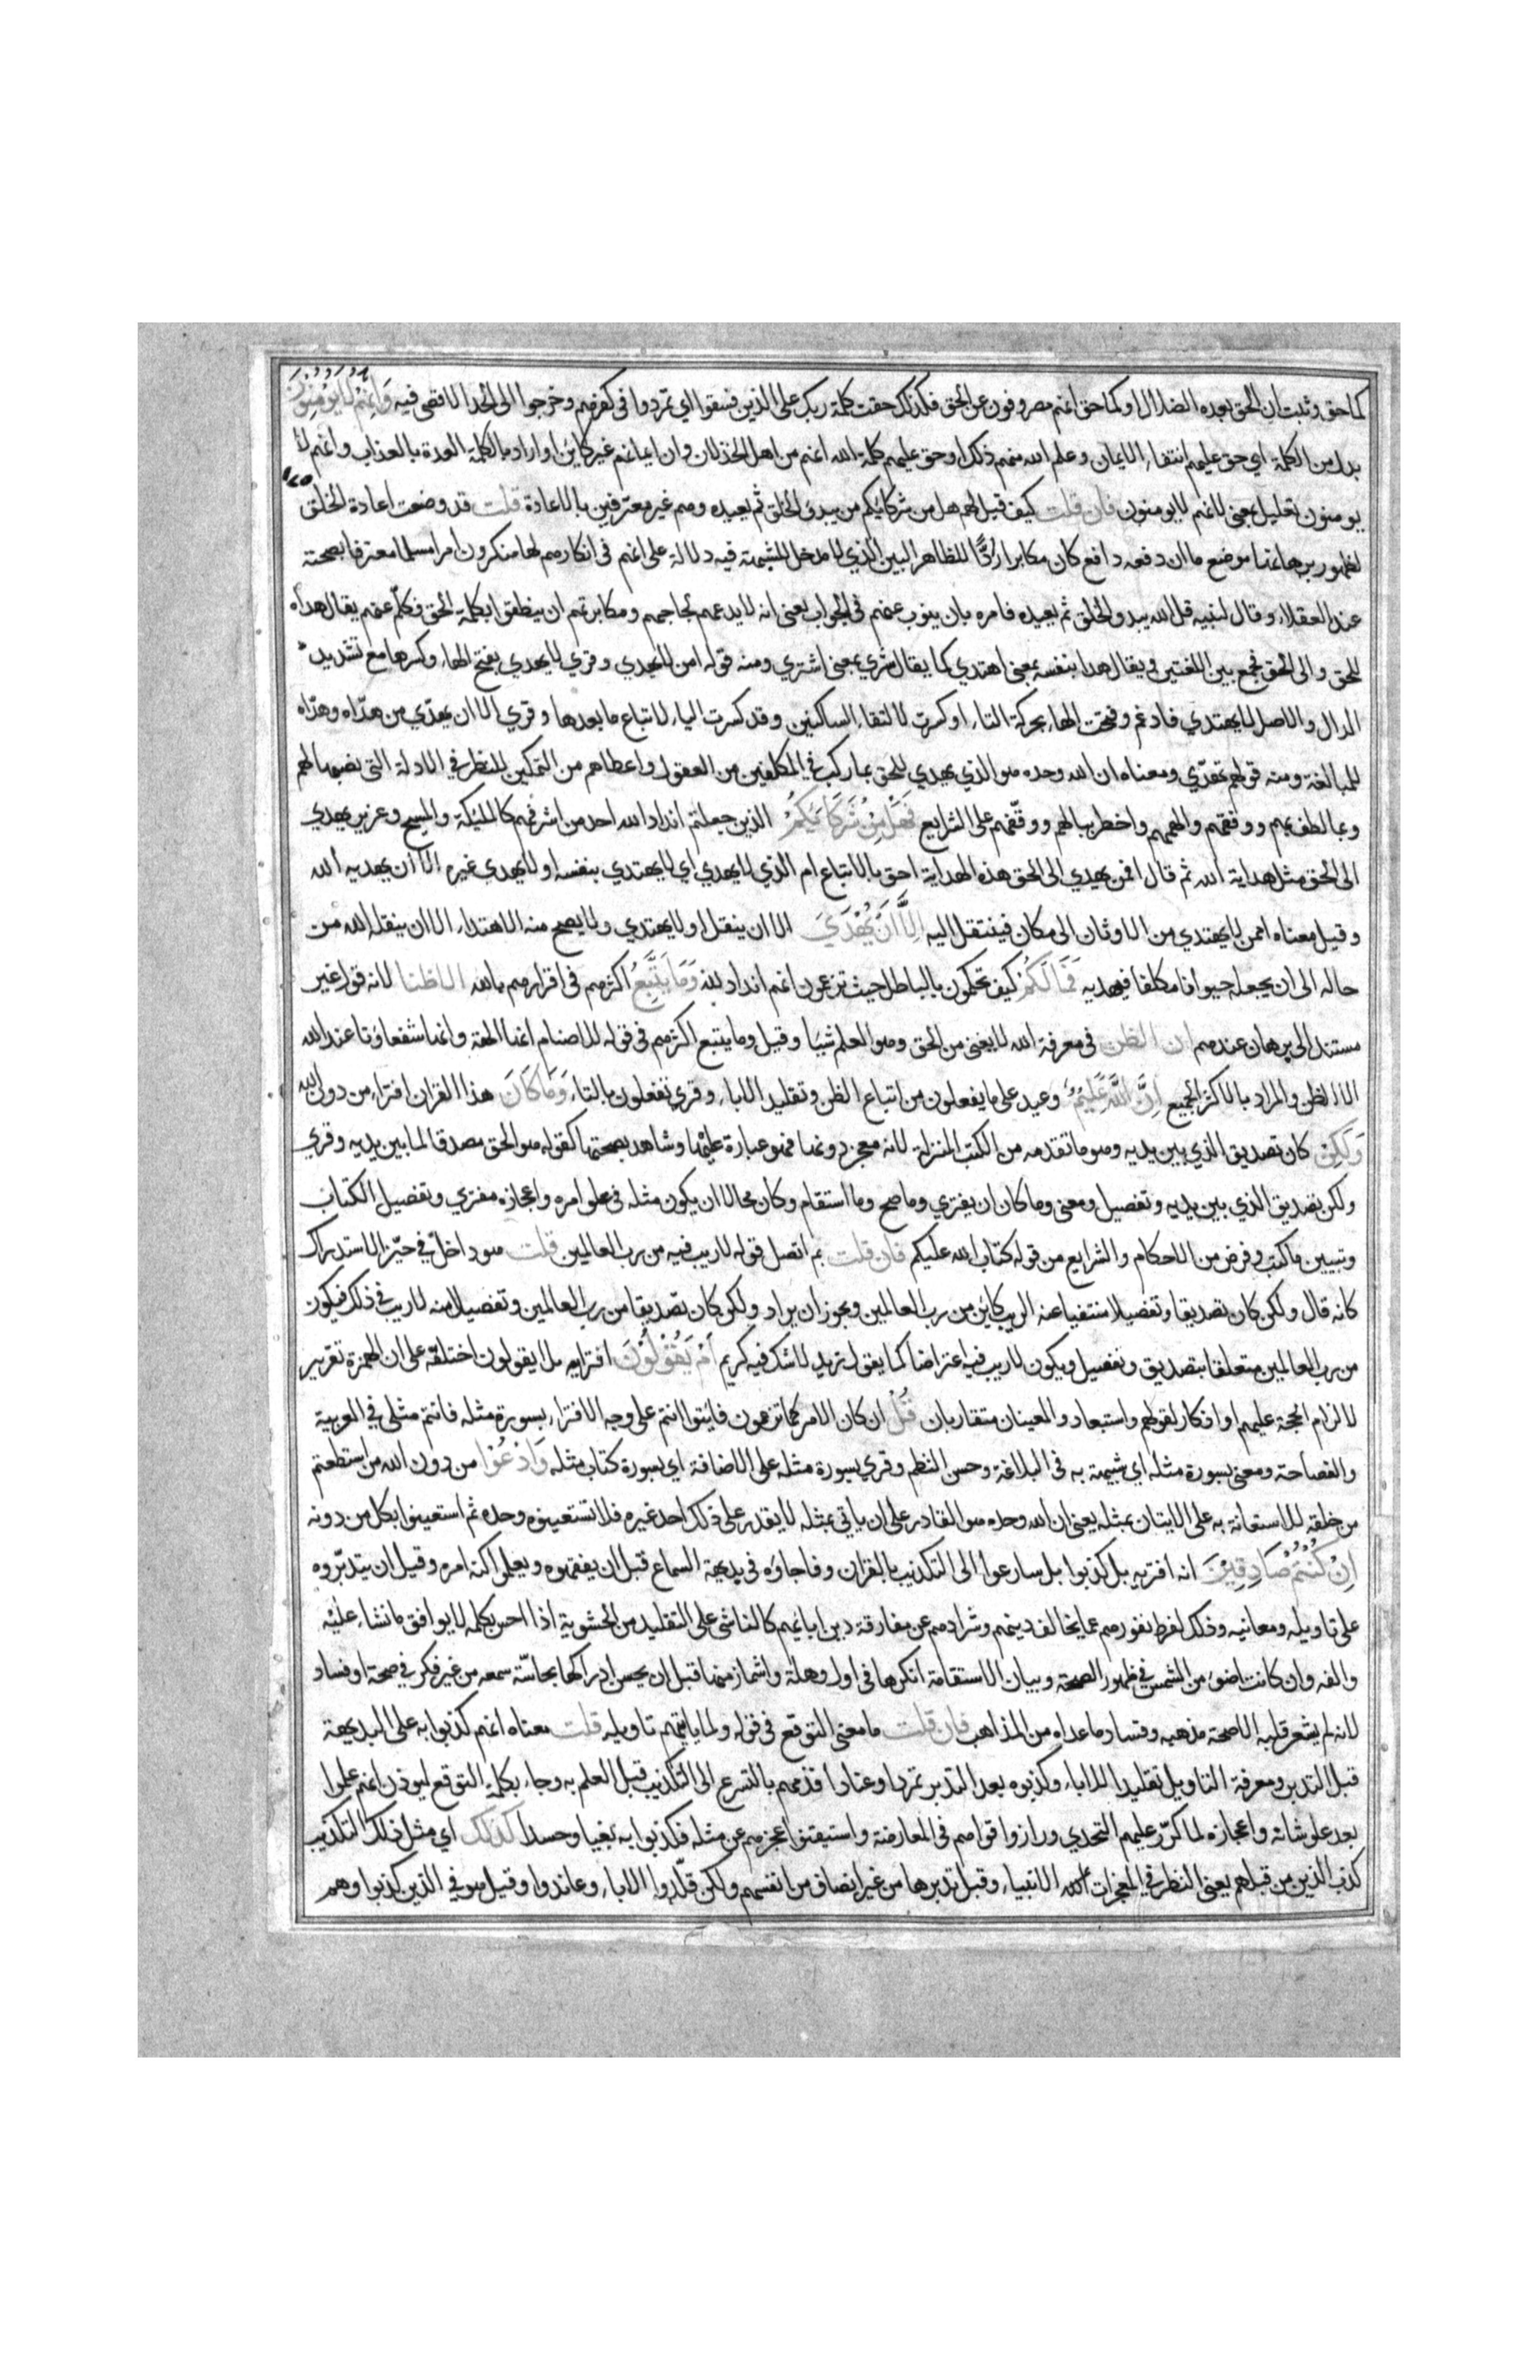 كما حق وثبت ان الحق بعده الضلال او كما حق انهم مصروفون عن الحق فكذلك حقت كلمة ربك على الذين فسقوا اي تمردوا في كفرهم وخرجوا الى الحد الاقصى فيه وَاَنَّهُمْ لَا يُؤْمِنُونَ
بدل من الكلمة اي حق عليهم انتفاء الايمان وعلم الله منهم ذلك او حق عليهم كلمة الله انهم من اهل الخذلان وان ايمانهم غير كاين او اراد بالكلمة العدة بالعذاب وانهم لا
يومنون تعليل بمعنى لانهم لا يومنون فان قلت كيف قيل لهم هل من شركايكم من يبدئ الخلق ثم يعيده وهم غير معترفين بالاعادة قلت قد وضعت اعادة الخلق
لظهور برهانها موضع ما ان دفعه دافع كان مكابرا رادًّا للظاهر البين الذي لا مدخل للشبهة فيه دلالة على انهم في انكارهم لها منكرون امرا مسلما معترفا بصحته
عند العقلاء وقال لنبيه قل الله يبدو الخلق ثم يعيده فامره بان ينوب عنهم في الجواب يعنى انه لا يدعهم لجاجهم ومكابرتهم ان ينطقوا بكلمة الحق فكلّم عنهم يقال هداه
للحق والى الحق فجمع بين اللغتين ويقال هدا بنفسه بمعنى اهتدي كما يقال شري بمعنى اشتري ومنه قوله امن لا يهدي وقري لا يهدي بفتح الهاء وكسرها مع تشديد
الدال والاصل لا يهتدي فادغم وفتحت الهاء بحركة التاء او كسرت لالتقاء الساكنين وقد كسرت الياء لاتباع ما بعدها وقري الا ان يهدّي من هدّاه وهدّاه
للمبالغة ومنه قولهم تهدّي ومعناه ان الله وحده هو الذي يهدي للحق بما ركب في المكلفين من العقول واعطاهم من التمكين للنظر في الادلة التي نصبها لهم
وبما لطف بهم ووفقهم والهمهم واخطر ببالهم ووقّفهم على الشرايع فَهَلْ مِنْ شُرَكَائِكُمْ الذين جعلتم اندادا لله احد من اشرفهم كالمليكة والمسيح وعزير يهدي
الى الحق مثل هداية الله ثم قال افمن يهدي الى الحق هذه الهداية احق بالاتباع ام الذي لا يهدي اي لا يهتدي بنفسه او لا يهدي غيره الا ان يهديه الله
وقيل معناه امن لا يهتدي من الاوثان الى مكان فينتقل اليه اِلَّا اَنْ يُهْدَي الا ان ينقل او لا يهتدي ولا يصح منه الاهتداء الا ان ينقله الله من
حاله الى ان يجعله حيوانا مكلفا فيهديه فَمَا لَكُمْ كيف تحكمون بالباطل حيث تزعمون انهم انداد لله وَمَا يَتَّبِعُ اكثرهم في اقرارهم بالله الا ظنا لانه قول غير
مستند الى برهان عندهم ان الظن في معرفة الله لا يغنى من الحق وهو العلم شيا وقيل وما يتبع اكثرهم في قوله للاصنام انها الهة وانها شفعاؤنا عند الله
الا الظن والمراد بالاكثر الجميع اِنَّ اللَّهَ عَلِيمٌ وعيد على ما يفعلون من اتباع الظن وتقليد الاباء وقري تفعلون بالتاء وَمَا كَانَ هذا القران افتراء من دون الله
وَلَكِنْ كان تصديق الذي بين يديه وهو ما تقدمه من الكتب المنزلة لانه معجز دونها فهو عبارة عليها وشاهد بصحتها كقوله هو الحق مصدقا لما بين يديه وقري
ولكن تصديق الذي بين يديه وتفصيل ومعنى وما كان ان يفتري وما صح وما استقام وكان محالا ان يكون مثله في علو امره واعجازه مفتري وتفصيل الكتاب
وتبيين ما كتب وفرض من الاحكام والشرايع من قوله كتاب الله عليكم فان قلت بم اتصل قوله لا ريب فيه من رب العالمين قلت هو داخل في حيّز الاستدراك
كانه قال ولكن كان تصديقا وتفصيلا منتفيا عنه الريب كاين من رب العالمين ويجوز ان يراد ولكن كان تصديقا من رب العالمين وتفصيلا منه لا ريب في ذلك فيكون
من رب العالمين متعلقا بتصديق وتفصيل ويكون لا ريب فيه اعتراضا كما يقول زيد لا شك فيه كريم اَمْ يَقُولُونَ افتراه بل ا يقولون اختلقه على ان الهمزة تقرير
لالزام الحجة عليهم او انكار لقولهم واستبعاد والمعينان متقاربان قُلْ ان كان الامر كما تزعمون فايتوا انتم على وجه الافتراء بسورة مثله فانتم مثلي في العربية
والفصاحة ومعنى بسورة مثله اي شبيهة به في البلاغة وحسن النظم وقري بسورة مثله على الاضافة اي بسورة كتاب مثله وَادْعُوا من دون الله من استطعتم
من خلقه للاستعانة به على الايتان بمثله يعنى ان الله وحده هو القادر على ان ياتي بمثله لا يقدر على ذلك احد غيره فلا تستعينوه وحده ثم استعينوا بكل من دونه
اِنْ كُنْتُمْ صَادِقِينَ انه افتريه بل كذبوا بل سارعوا الى التكذيب بالقران وفاجاوه في بديهة السماع قبل ان يفقهوه ويعلموا كنه امره وقبل ان يتدبّروه
على تاويله ومعانيه وذلك لفرط نفورهم عما يخالف دينهم وشرادهم عن مفارقة دين ابايهم كالناشي على التقليد من الحشوية اذا احس بكلمة لا يوافق ما نشاء عليه
والفه وان كانت اضوى من الشمس في ظهور الصحة وبيان الاستقامة انكرها في اول وهلة واشماز منها قبل ان يحس ادراكها بحاسّة سمعه من غير فكر في صحة او فساد
لانه لم يشعر قلبه الا صحة مذهبه وفساد ما عداه من المذاهب فان قلت ما معنى التوقع في قوله ولما ياتهم تاويله قلت معناه انهم كذبوا به على البديهة
قبل التدبر ومعرفة التاويل تقليدا للاباء وكذبوه بعد التدبر تمردا وعنادا فذمهم بالتسرع الى التكذيب قبل العلم به وجاء بكلمة التوقع ليوذن انهم علموا
بعد علو شانه واعجازه لما كرّر عليهم التحدي ورازوا قواهم في المعارضة واستيقنوا عجزهم عن مثله فكذبوا به بغيا وحسدا كذلك اي مثل ذلك التكذيب
كذب الذين من قبلهم يعنى النظر في معجزات الانبياء وقبل تدبرها من غير انصاف من انفسهم ولكن قلّدوا الاباء وعاندوا وقيل هو في الذين كذبوا وهم